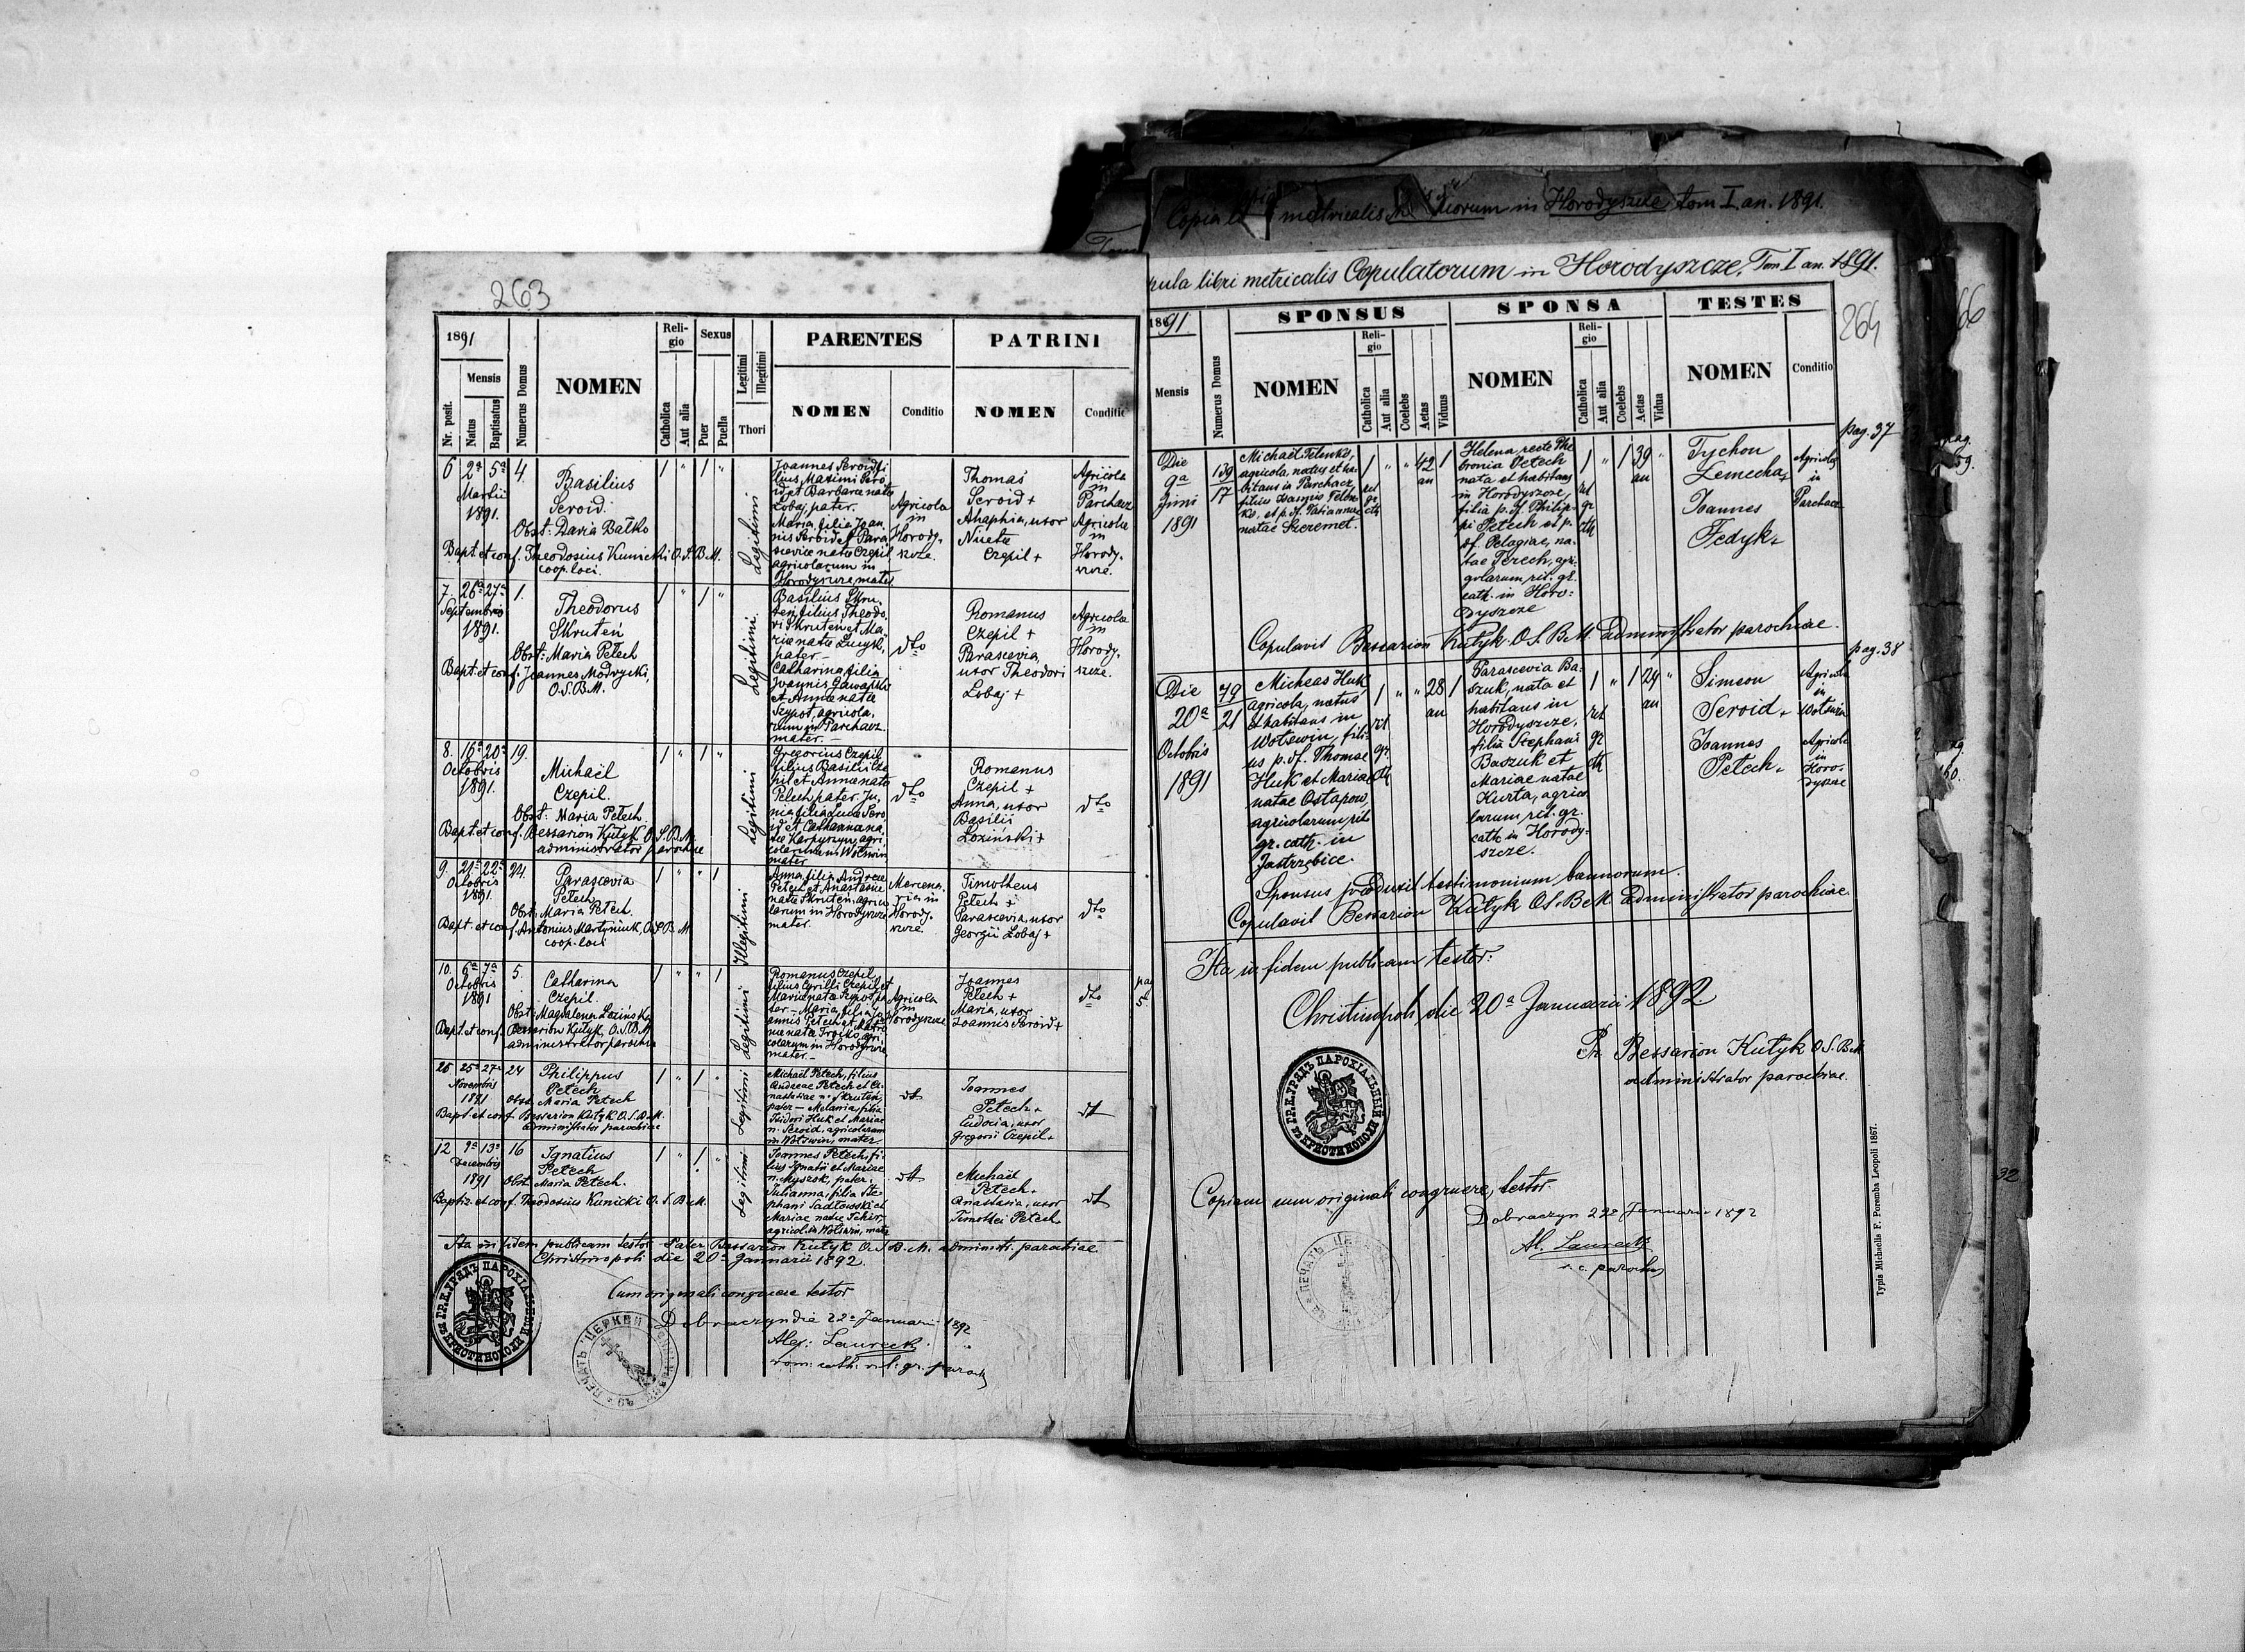 263
1891
Nr. posit.
Mensis
Natus
Baptisatus
Numerus Domus
NOMEN
Reli-
gio
Catholica
Aut alia
Sexus
Puer
Puella
Legitimi
Illegitimi
Thori
PARENTES
NOMEN
Conditio
PATRINI
NOMEN
Conditio
6 2a 5a 4.
Martii
1891.
Basilius
Seroid.
Obst: Daria Bałko
Bapt. et conf. Theodosius Kunicki O.S.B.M.
coop. loci.
1 " 1 "
Legitimi
Joannes Seroid fi
lius Maximi Sero
id et Barbarae nata
Łobaj, pater.
Maria, filia Joan.
nis Seroid et Para
sceviae nata Czepil
agricolarum in
Horodyszcze mater
Agricola
in
Horody.
szcze.
Thomas
Seroid +
Ahaphia, uxor
Nicetae
Czepil +
Agricola
in
Parchacz
Agricola
in
Horody.
szcze.
7. 26a 27a 1.
Septembris
1891.
Theodorus
Skruteń
Obst: Maria Petech
Bapt. et conf. Joannes Modrycki,
O.S.B.M.
1 " 1 "
Legitimi.
Basilius Skru
teń, filius Theodo
ri Skruteń et Ma
riae nata Łucyk,
pater.
Catharina filia
Joannis
et Annae nata
Szypot, agricola.
rum in Parchacz.
mater.
dto
Romanus
Czepil +
Parascevia
uxor Theodori
Łobaj +
Agricola
in
Horody.
szcze.
8. 16a 20a 19.
Octobris
1891.
Michaël
Czepil.
Obst: Maria Petech.
Bapt. et conf. Bessarion Kutyk O.S.B.M.
administrator parochiae
1 " 1 "
Legitimi
Gregorius Czepil
filius Basilii Cze
pil et Annae nata
Petech, pater. Ju
nia filia Lucae Sero
id et Catharinae na
tae Karpyszyn, agri
colarum in Wołswin
mater
dto
Romanus
Czepil +
Anna, uxor
Basilii
Łoziński +
dto
9. 21a 22a 24.
Octobris
1891.
Parascevia
Petech
Obst: Maria Petech.
Bapt. et conf. Antonius Martyniuk, O.S.B.M.
coop. loci
1 " " 1
Illegitimi
Anna, filia Andreae
Petech et Anastasiae
natae Skruteń, agrico
larum in Horodyszcze
mater.
Mercena.
ria in
Horody.
szcze
Timotheus
Petech +
Parascevia, uxor
Georgii Łobaj +
dto
10. 6a 7a 5.
Octobris
1891
Catharina
Czepil.
Obst: Magdalena Łozińska
Bapt. et conf. Bessarion Kutyk, O.S.B.M.
administrator parochiae
1 " " 1
Legitimi
Romanus Czepil
filius Cyrilli Czepil et
Mariae nata Szypot pa
ter - Maria, filia Jo
annis Petech et
nata Trojko, agri
colarum in Horodyszcze
mater.
Agricola
in
Horodyszcze
Joannes
Petech +
Maria, uxor
Joannis Seroid +
dto
25a 27a 24
Novembris
1891
Philippus
Petech
Obst. Maria Petech
Bapt. et conf. Bessarion Kutyk O.S.B.M.
administrator parochiae
1 " 1 "
Legitimi
Michaël Petech, filius
Andreae Petech et A
nastasiae n. Skruteń,
pater - Melania, filia
Isidori Huk et Mariae
n. Seroid, agricolarum
in Wołswin, mater.
dt
Joannes
Petech +
Eudocia, uxor
Gregorii Czepil +
dt
12 9a 13a 16
Decembris
1891
Ignatius
Petech
Obst. Maria Petech.
Baptiz. et conf. Theodosius Kunicki O.S.B.M.
1 " 1 "
Legitimi
Joannes Petech, fi
lius Ignatii et Mariae
n. Myszok, pater.
Julianna, filia Ste
phani Sadłowski et
Mariae natae
agricol. in Wołswin, mater
dt
Michaël
Petech +
Anastasia, uxor
Timothei Petech
dt
Ita in fidem publicam testor Pater Bessarion Kutyk O.S.B.M. administr. parochiae
Christinopoli die 20a Januarii 1892.
Cum originali congruere testor
Dobraczyn die 22a Januarii 1892
Alex: Laurecki
rom: cath: rit: gr. paroch
Copia metricalis in Horodyszcze tom I an. 1891.
pula libri metricalis Copulatorum in Horodyszcze, Tom I an. 1891.
264
66
1891
Mensis
Numerus Domus
SPONSUS
NOMEN
Reli-
gio
Catholica
Aut alia
Coelebs
Aetas
Viduus
SPONSA
NOMEN
Reli-
gio
Catholica
Aut alia
Coelebs
Aetas
Vidua
TESTES
NOMEN
Conditio
pag. 37
Die
9a
Junii
1891
139
17
Michaël Telenko,
agricola, natus et ha
bitans in Parchacz
filius Joannis Telen
ko, et p. df. Tatiannae
natae Szeremet.
1 " " 42 1
an
rit
gr
cth
Helena, recte Phe
bronia Petech
nata et habitans
in Horodyszcze,
filia p. df. Philip-
pi Petech et p.
df. Pelagiae, na-
tae Terech, agri-
colarum rit. gr.
cath. in Horo-
dyszcze
1 " 1 39 "
an
rit
gr
cth
Tychon
Lemecha +
Joannes
Fedyk +
Agricolae
in
Parchacz
Copulavit Bessarion Kutyk O.S.B.M. administrator parochiae.
pag. 38
Die
20a
Octobris
1891
79
21
Micheas Huk,
agricola, natus
et habitans in
Wołswin, fili-
us p. df. Thomae
Huk et Mariae
natae Ostapow,
agricolarum rit
gr. cath. in
Jastrzębice.
1 " " 28 1
an
rit
gr
cth
Parascevia Ba-
szuk, nata et
habitans in
Horodyszcze,
filia Stephani
Baszuk et
Mariae natae
Kurta, agrico
larum rit. gr.
cath in Horody-
szcze.
1 " 1 24 "
an
rit
gr
cth
Simeon
Seroid +
Joannes
Petech +
Agricola
in
Wołswin
Agricola
in
Horo-
dyszcze
Sponsus produxit testimonium bannorum.
Copulavit Bessarion Kutyk O.S.B.M. administrator parochiae.
Ita in fidem publicam testor:
Christinopoli, die 20a Januarii 1892.
Bessarion Kutyk O.S.B.M.
administrator parochiae.
Copiam cum originali congruere, testor.
Dobraczyn 22a Januarii 1892
Al. Laurecki
r. c. parochus
Typis Michaelis F. Poremba Leopoli 1867.
ГР.К.УРЯДЪ ПАРОХІАЛЬНЫЙ
въ КРИСТИНОПОЛИ